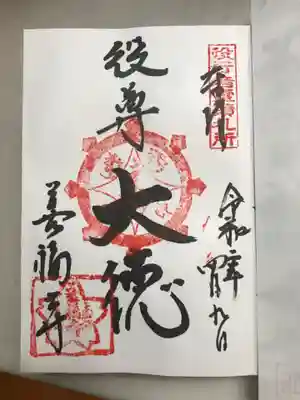 役行者霊蹟札所
奉拝
令和 年 月九日
役尊
大徳
善福寺